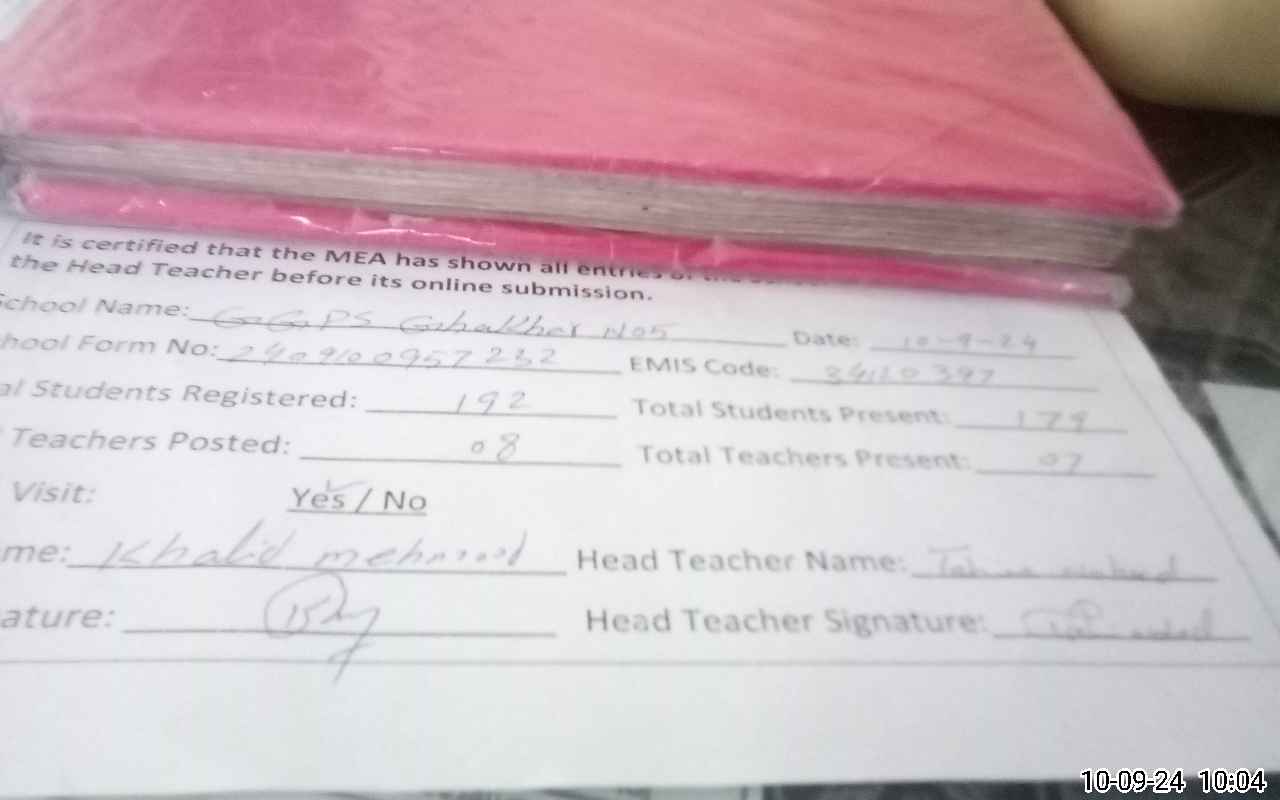 It is certified that the MEA has shown all entries of the
the Head Teacher before its online submission.
School Name: GGPS Ghakhar No5 Date: 10-9-24
hool Form No: 2409100957232 EMIS Code: 34120397
al Students Registered: 192 Total Students Present: 179
Teachers Posted: 08 Total Teachers Present: 07
Visit: Yes / No
me: Khalid mehmood Head Teacher Name:
ature: Head Teacher Signature:
10-09-24 10:04